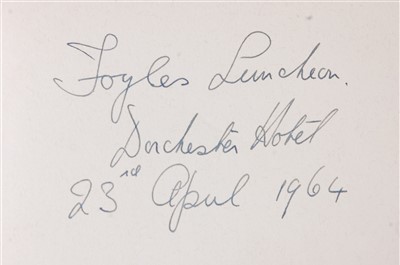 Foyles Luncheon.
Dorchester Hotel
23rd April 1964